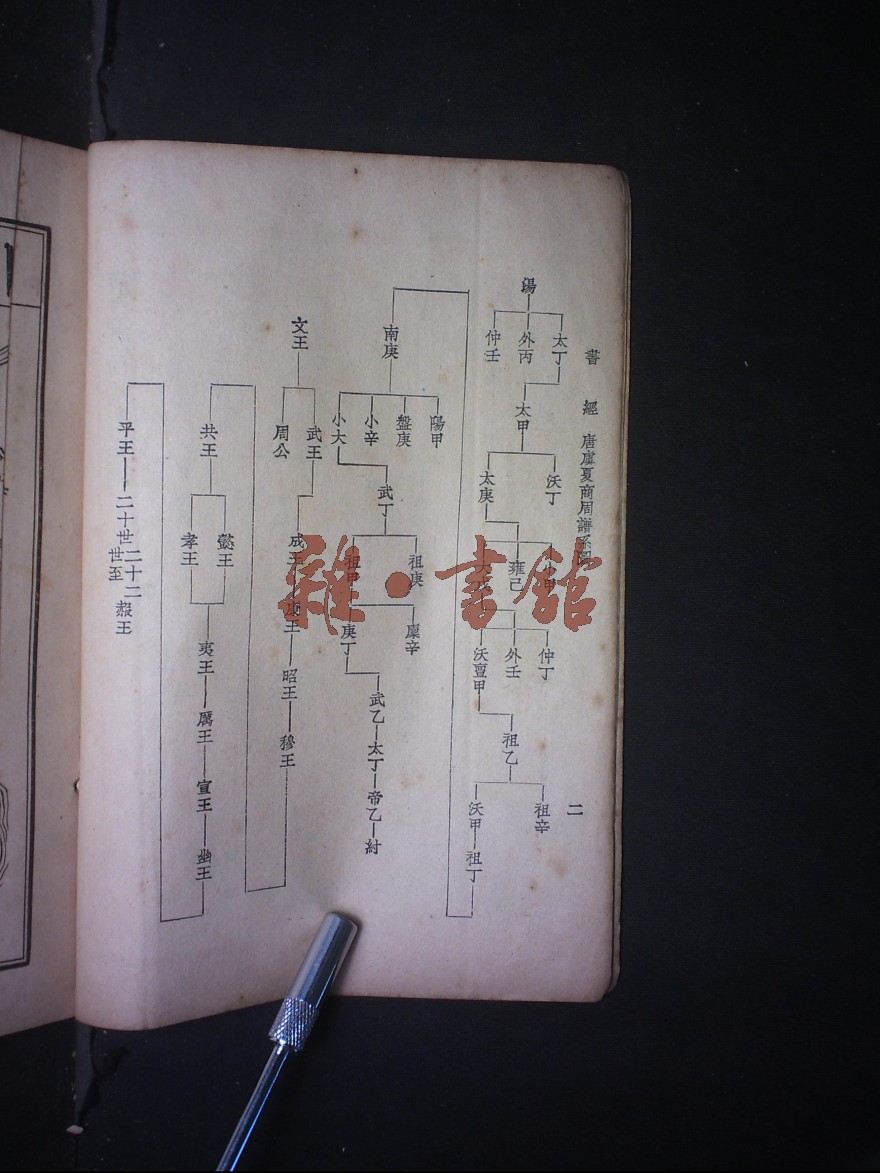 書經 唐虞夏商周譜系圖
二
湯
太丁
外丙
仲壬
太甲
沃丁
太庚
小甲
雍己
仲丁
外壬
沃亶甲
祖乙
祖辛
沃甲
祖丁
南庚
陽甲
盤庚
小辛
小大
武丁
祖庚
祖甲
廩辛
庚丁
武乙
太丁
帝乙
紂
文王
武王
周公
成王
康王
昭王
穆王
共王
懿王
孝王
夷王
厲王
宣王
幽王
平王
二十世二十二
世至
赧王
雜·書館